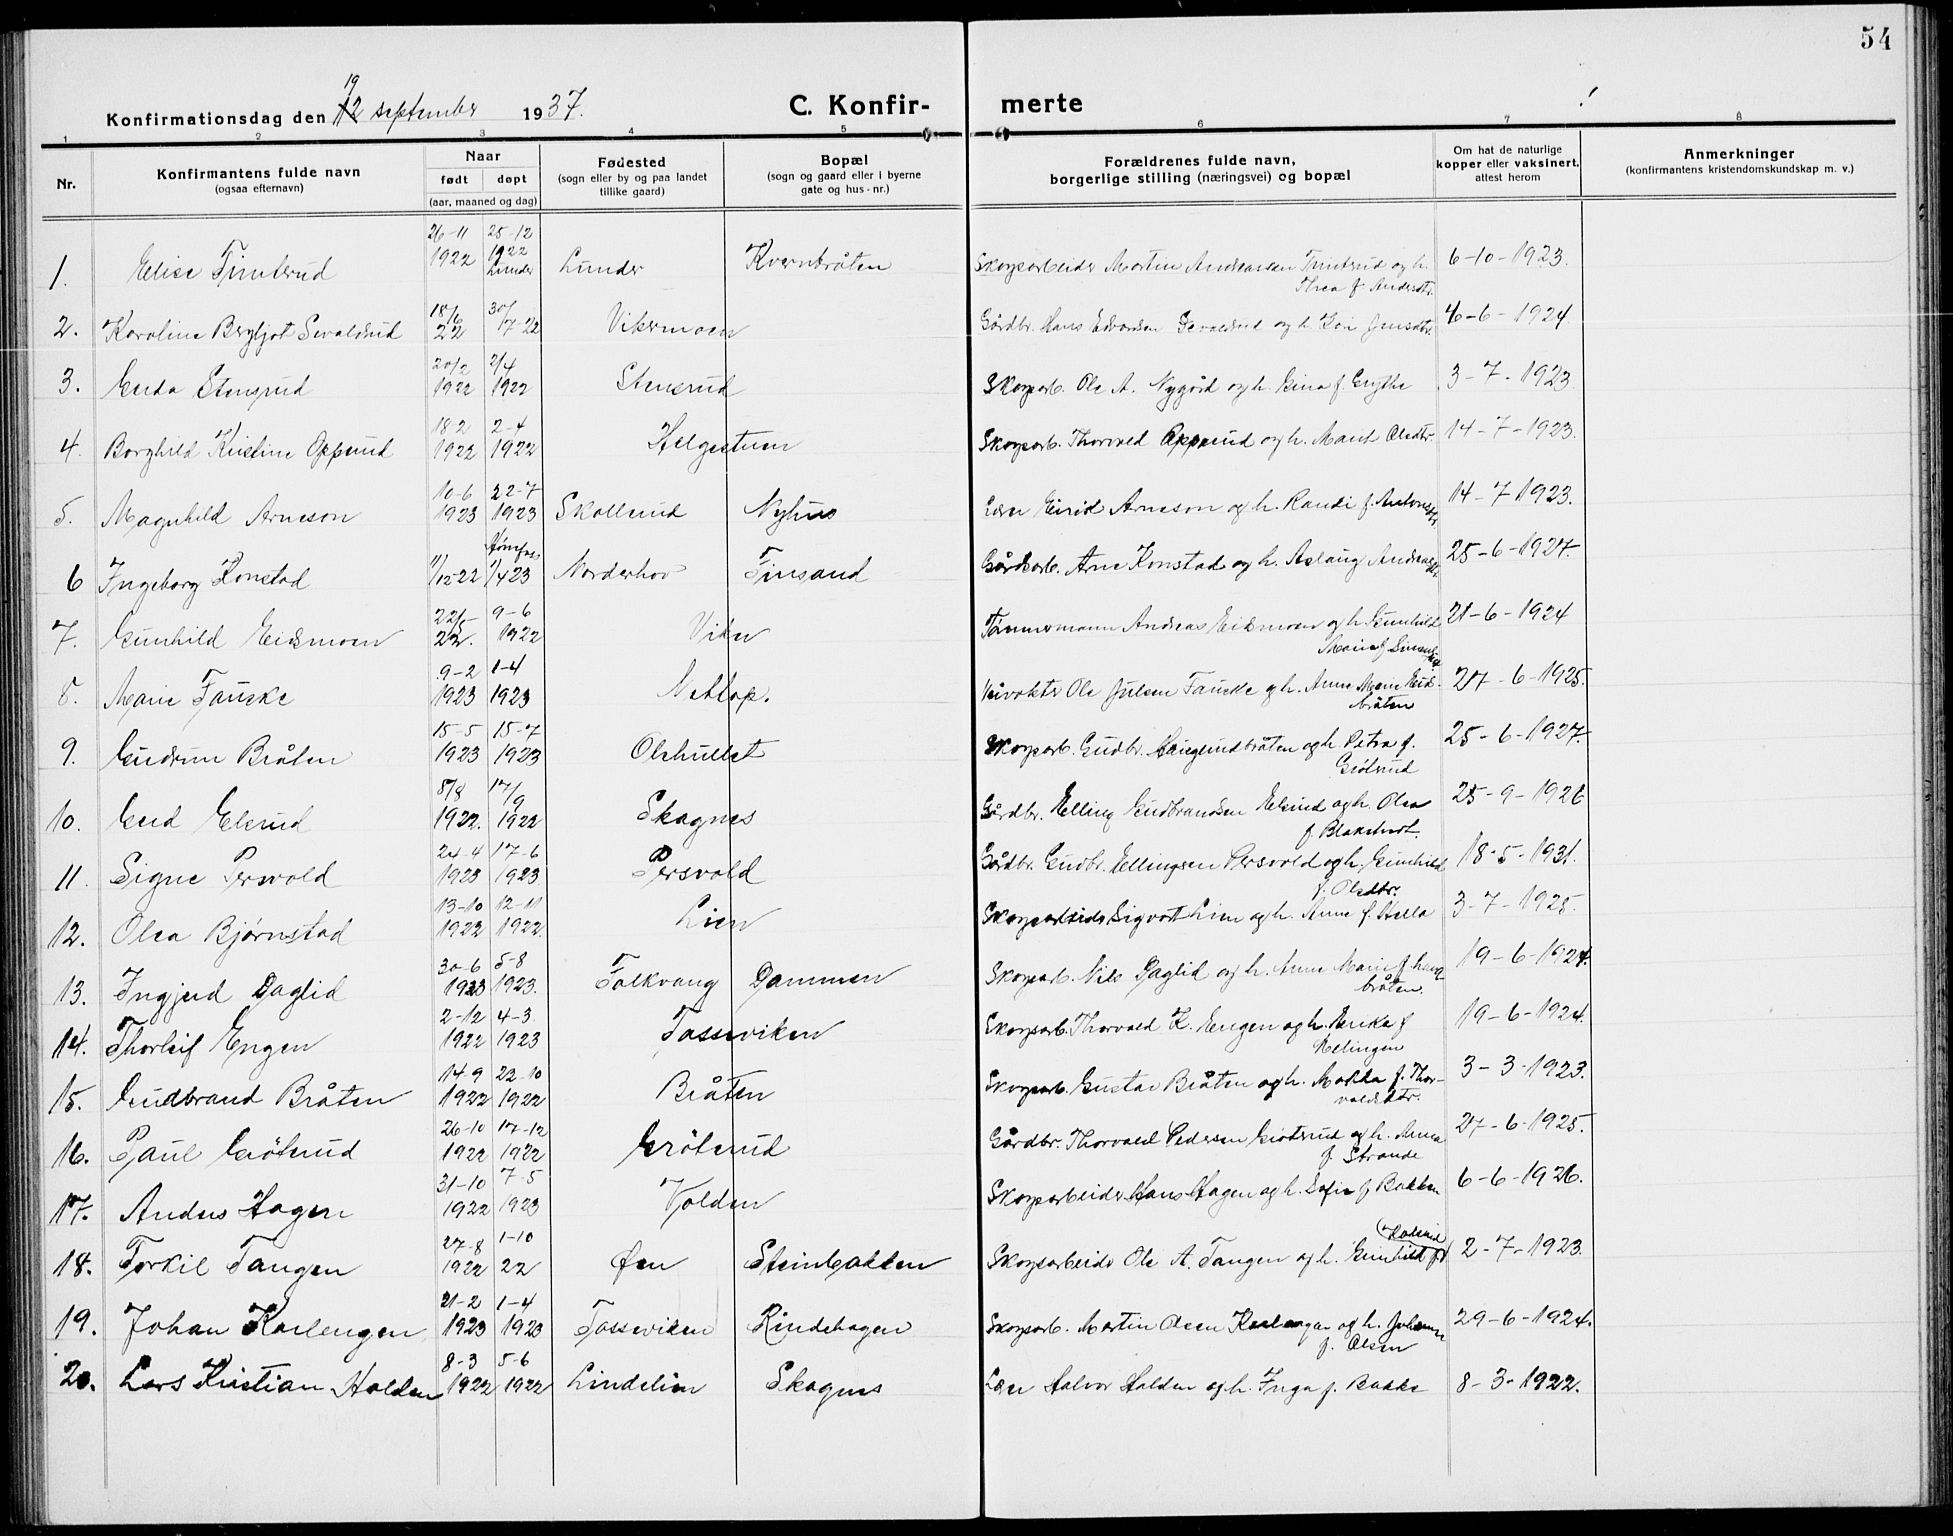 54
19
Konfirmationsdag den 12 september 1937.
C. Konfir- merte
1 2 3 4 5 6 7 8
Nr.
Konfirmantens fulde navn
(ogsaa efternavn)
Naar
født døpt
(aar, maaned og dag)
Fødested
(sogn eller by og paa landet
tillike gaard)
Bopæl
(sogn og gaard eller i byerne
gate og hus-nr.)
Forældrenes fulde navn,
borgerlige stilling (næringsvei) og bopæl
Om hat de naturlige
kopper eller vaksinert,
attest herom
Anmerkninger
(konfirmantens kristendomskundskap m. v.)
1. Elise Finterud 26-11 1922 25-12 1922 Lunder Lunder Kvernbråten Skogsarbeider Martin Andreassen Finterud og h. 6-10-1923.
Thea f. Andersdtr.
2. Karoline Bergljot Sevaldrud 18/6 22 30/7-22 Vikermoen Gårdbr. Hans Edvardsen Sevaldrud og h. Kari Jensdtr. 4-6-1924
3. Gerda Stensrud 20/2 1922 2/4 1922 Stensrud Skogsarb. Ole A. Nygård og h. Gina f. 3-7-1923.
4. Borghild Kristine Opperud 18-2 1922 2-4 1922 Helgestuen Skogsarb. Thorvald Opperud og h. Marit Olsdtr. 14-7-1923.
5. Magnhild Arneson 10-6 1923 22-7 1923 Skollerud Nyhus Lærer Eirid Arneson og h. Randi f. 14-7 1923.
6 Ingeborg Konstad 11/12-22 1/4 23 Hønefoss Norderhov Finsand Gårdsarb. Arne Konstad og h. Aslaug 25-6-1927.
7. Gunhild Eidsmoen 22/5 22. 9-6 1922 Viker Tømmermann Andreas Eidsmoen og h. Gunhild 21-6-1924
Marie f.
8. Marie Fauske 9-2 1923 1-4 1923 Nettop. Veivokter Ole Julsen Fauske og h. Anne Marie Gud- 27-6-1925.
bråten
9. Gudrun Bråten 15-5 1923 15-7 1923 Olshullet Skogsarb. Gudbr. Haugerudbråten og h. Petra f. 25-6-1927.
Grötrud
10. Gerd Elsrud 8/8 1922. 17/9 1922 Skagnes Gårdbr. Elling Gudbrandsen Elsrud og h. Olea 25-9-1926
f. Blakstvedt.
11. Signe Persvold 24-4 1923 17-6 1923 Persvold Gårdbr. Gudbr. Ellingsen Persvold og h. Gunhild 18-5-1931.
f. Olsdtr.
12. Olea Bjørnstad 13-10 1922 12-11 1922. Lien Skogsarbeider Sigvart Lien og h. Anne f. Hella 3-7-1925.
13. Ingjerd Daglid 30-6 1923 5-8 1923. Folkvang Dammen Skogsarb. Nils Daglid og h. Anne Marie f. Haug- 19-6-1924.
bråten.
14. Thorleif Engen 2-12 1922 4-3 1923 Tosseviken Skogsarb. Thorvald K. Engen og h. Erika f. 19-6-1924.
Kelingen
15. Gudbrand Bråten 14-9 1922 22-10 1922 Bråten Skogsarb. Gustav Bråten og h. Makka f. Thor- 3-3-1923.
valdsdtr.
16. Paul Grötrud 26-10 1922 17-12 1922 Grötrud Gårdbr. Thorvald Pedersen Grötrud og h. Anna 27-6-1925.
f. Strande
17. Anders Hagen 31-10 1922 7-5 1923 Volden Skogsarbeider Hans Hagen og h. Sofie f. Bakken 6-6-1926.
18. Torkil Tangen 27-8 1922 1-10 22 Øen Steinbakken Skogsarbeider Ole A. Tangen og h. Gunhild f. 2-7-1923.
19. Johan Karlengen 21-2 1923 1-4 1923 Tosseviken Rindehagen Skogsarb. Martin Olsen Karlengen og h. Johanne 29-6-1924.
f. Olsen
20. Lars Kristian Halden 8-3 1922 5-6 1922 Lindelien Skagnes Lærer Halvor Halden og h. Inga f. Bakke 8-3-1922.